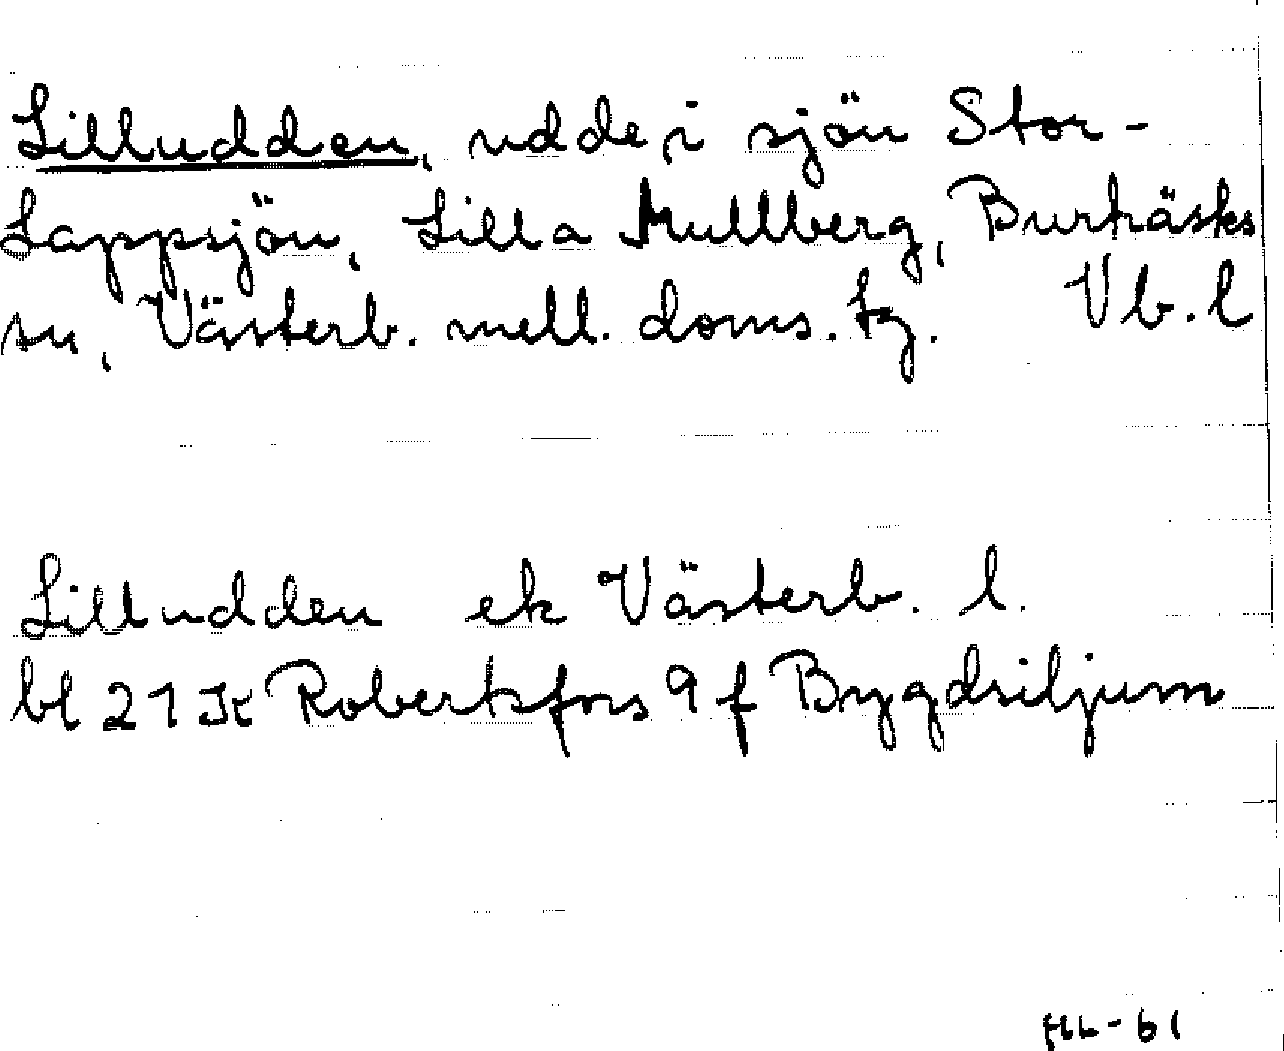 Lilludden, udde i sjön Stor-
Lappsjön, Lilla Kullberg, Burträsks
sn, Västerb. mell. doms. tg. Vb. l
Lilludden ek Västerb. l.
bl 21 K Robertsfors 9 f Bygdsiljum
HL-61